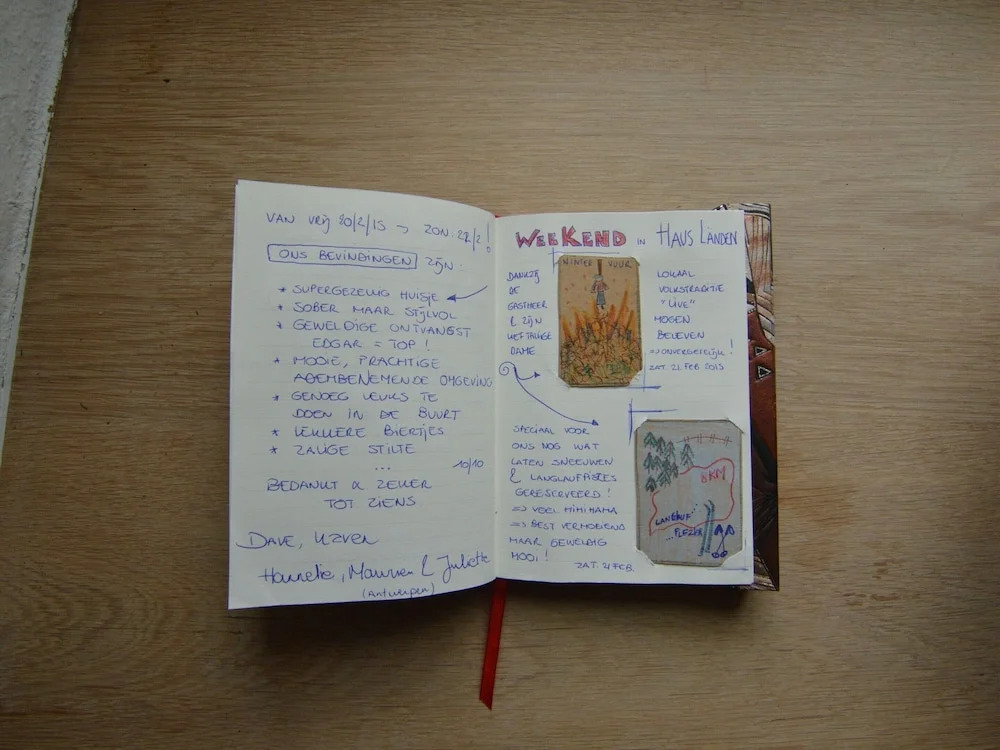 VAN VRIJ 20/2/15 → ZON. 22/2!
ONS BEVINDINGEN ZIJN:
* SUPERGEZELLIG HUISJE
* SOBER MAAR STIJLVOL
* GEWELDIGE ONTVANGST
EDGAR = TOP !
* MOOIE, PRACHTIGE
ADEMBENEMENDE OMGEVING
* GENOEG LEUKS TE
DOEN IN DE BUURT
* LEKKERE BIERTJES
* ZALIGE STILTE
...
10/10
BEDANKT & ZEKER
TOT ZIENS
DAVE,
Hanneke, & Juliette
(Antwerpen)
WEEKEND IN HAUS LÄNDEN
DANKZIJ
DE
GASTHEER
& ZIJN
LIEFTALLIGE
DAME
WINTER VUUR
LOKAAL
VOLKSTRADITIE
"LIVE"
MOGEN
BELEVEN
=> ONVERGETELIJK!
ZAT. 21 FEB 2015
SPECIAAL VOOR
ONS NOG WAT
LATEN SNEEUWEN
& LANGLAUFPISTES
GERESERVEERD!
=> VEEL HIHIHAHA
=> BEST VERMOEIEND
MAAR GEWELDIG
MOOI!
ZAT. 21 FEB.
8KM
LANGLAUF
PLEZIER